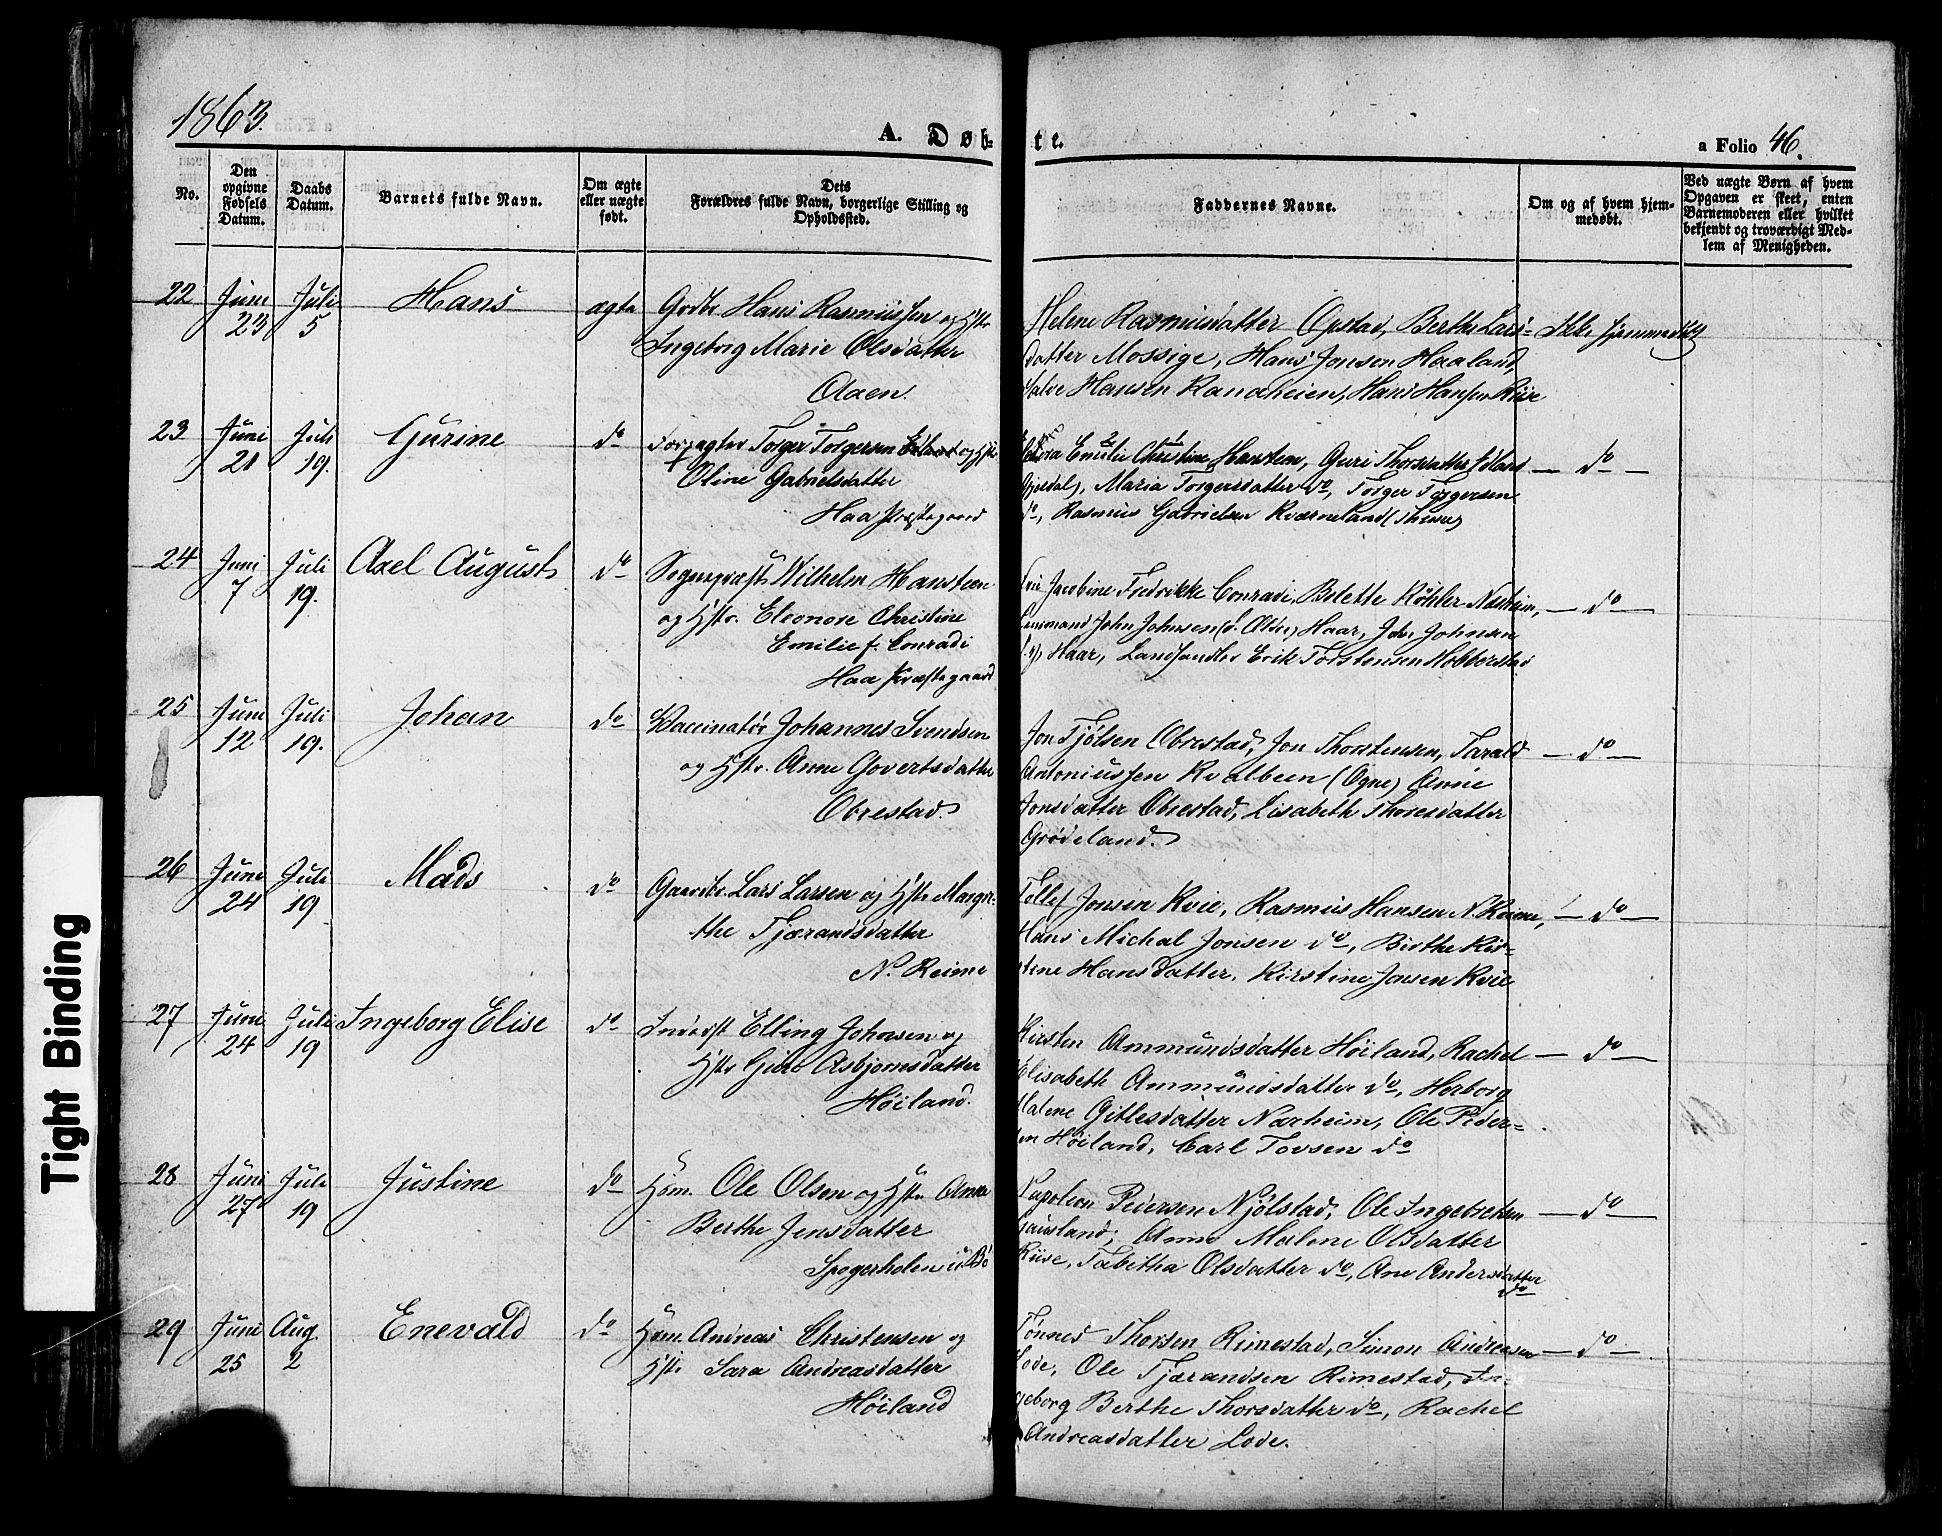 1863.
A. Døb-
te.
a Folio 46.
No.
Den opgivne Fødsels Datum.
Daabs Datum.
Barnets fulde Navn.
Om ægte eller uægte født.
Dets Forældres fulde Navn, borgerlige Stilling og Opholdssted.
Faddernes Navne.
Om og af hvem hjem-
medøbt.
Ved uægte Børn af hvem
Opgaven er skeet, enten
Barnemoderen eller hvilket
bekjendt og troværdigt Med-
lem af Menigheden.
22 Juni 23 Juli 5 Hans ægte
Grdbr. Hans Rasmussen og Hstr
Ingeborg Marie Olsdatter
Aaen.
Helene Rasmusdatter Opstad, Berthe Lars-
datter Mossige, Hans Jonsen Haaland,
Salve Hansen Randheien, Hans Hansen Riie
Ikke hjemmedøbt
23 Juni 21 Juli 19. Gurine do
Forpagter Torger Torgersen og Hstr
Oline Gabrielsdatter
Haa Præstegaard
Emilie Christine Hansten, Guri Thorsdatter
Gjesdal), Maria Torgersdatter do, Torger Torgersen
do, Rasmus Gabrielsen Kværneland (Thime)
— do —
24 Juni 7 Juli 19. Axel August do
Sognepræst Wilhelm Hansteen
og Hstr. Eleonore Christine
Emilie f. Conradi
Haa Præstegaard
Jacobine Fredrikke Conradi, Bolette Köhler Næsheim,
John Johnsen (d. Ældre) Haar, John Johnsen
Haar, Landhandler Erik Torstensen Hobberstad
— do —
25 Juni 12 Juli 19. Johan do
Vaccinatör Johannes Svendsen
og Hstr. Anne Govertsdatter
Obrestad.
Jon Tjölsen Obrestad, Jon Thorstensen, Tarald
Antoniussen Kvalbein (Ogne) Anne
Jonsdatter Obrestad, Lisabeth Thoresdatter
Grödeland.
— do —
26 Juni 24 Juli 19 Mads do
Gaardbr. Lars Larsen og Hstr Margre-
the Tjærandsdatter
N. Reime
Tollef Jonsen Kvie, Rasmus Hansen N. Reime,
Hans Michal Jonsen do, Birthe Kir-
stine Hansdatter, Kirstine Jonsen Kvie
— do —
27 Juni 24 Juli 19 Ingeborg Elise do
Inderst Elling Johnsen og
Hstr Guro Asbjörnsdatter
Höiland.
Kirsten Ammundsdatter Höiland, Rachel
Elisabeth Ammundsdatter do, Herborg
Malene Gitlesdatter Narheim, Ole Peder-
sen Höiland, Carl Tovsen do
— do —
28 Juni 27 Juli 19 Justine do
Hsm. Ole Olsen og Hstr. Anna
Berthe Jensdatter
Spogerholen u. Bö
Napoleon Pedersen Njölstad, Ole Ingebretsen
Gausland, Anne Malene Olsdatter
Riise, Tabitha Olsdatter do, Ane Andersdatter
do
— do —
29 Juni 25 Aug. 2 Enevald do
Hsm. Andreas Christensen og
Hstr. Sara Andreasdatter
Höiland
Tönnes Thorsen Rimestad, Simon Andreasen
Lode, Ole Tjærandsen Rimestad, In-
geborg Berthe Thorsdatter do, Rachel
Andreasdatter Lode.
— do —
Tight Binding